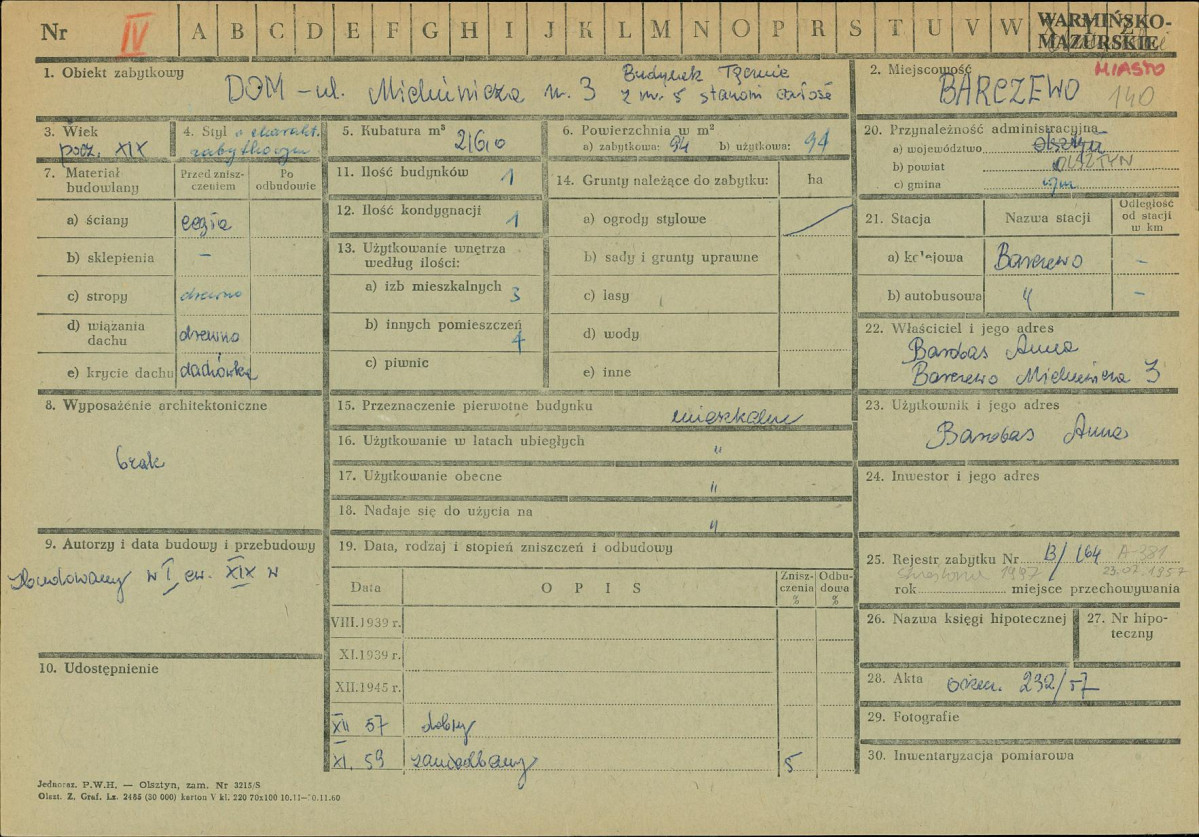 Nr IV A B C D E F G H I J K L M N O P R S T U V W
WARMIŃSKO-
MAZURSKIE
1. Obiekt zabytkowy DOM - ul. Mickiewicza nr. 3
Budynek Tącznie
z nr. 5 stanowi całość
2. Miejscowość
BARCZEWO
MIASTO
140
3. Wiek
pocz. XIX
4. Styl o charakt.
zabytkowym
5. Kubatura m³ 260
6. Powierzchnia w m²
a) zabytkowa: 94 b) użytkowa: 94
7. Materiał
budowlany
Przed znisz-
czeniem
Po
odbudowie
a) ściany cegła
b) sklepienia –
c) stropy drewno
d) wiązania
dachu drewno
e) krycie dachu dachówka
8. Wyposażenie architektoniczne
brak
9. Autorzy i data budowy i przebudowy
Zbudowany w I ćw. XIX w
10. Udostępnienie
11. Ilość budynków 1
12. Ilość kondygnacji 1
13. Użytkowanie wnętrza
według ilości:
a) izb mieszkalnych 3
b) innych pomieszczeń
4
c) piwnic
14. Grunty należące do zabytku: ha
a) ogrody stylowe
b) sady i grunty uprawne
c) lasy
d) wody
e) inne
15. Przeznaczenie pierwotne budynku mieszkalne
16. Użytkowanie w latach ubiegłych "
17. Użytkowanie obecne "
18. Nadaje się do użycia na "
19. Data, rodzaj i stopień zniszczeń i odbudowy
Data OPIS Znisz-
czenia
% Odbu-
dowa
%
VIII.1939 r.
XI.1939 r.
XII.1945 r.
XII 57 dobry
XI. 59 zaniedbany 5
20. Przynależność administracyjna
a) województwo Olsztyn
b) powiat OLSZTYN
c) gmina
21. Stacja Nazwa stacji Odległość
od stacji
w km
a) kolejowa Barczewo –
b) autobusowa " –
22. Właściciel i jego adres
Barabas Anna
Barczewo Mickiewicza 3
23. Użytkownik i jego adres
Barabas Anna
24. Inwestor i jego adres
25. Rejestr zabytku Nr B/164 A-381
Skreślone 1997 23.07.1957
rok miejsce przechowywania
26. Nazwa księgi hipotecznej
27. Nr hipo-
teczny
28. Akta orzecz. 232/57
29. Fotografie
30. Inwentaryzacja pomiarowa
Jednoraz. P.W.H. — Olsztyn, zam. Nr 3215/S
Olszt. Z. Graf. Lz. 2485 (30 000) karton V kl. 220 70x100 10.11-10.11.60